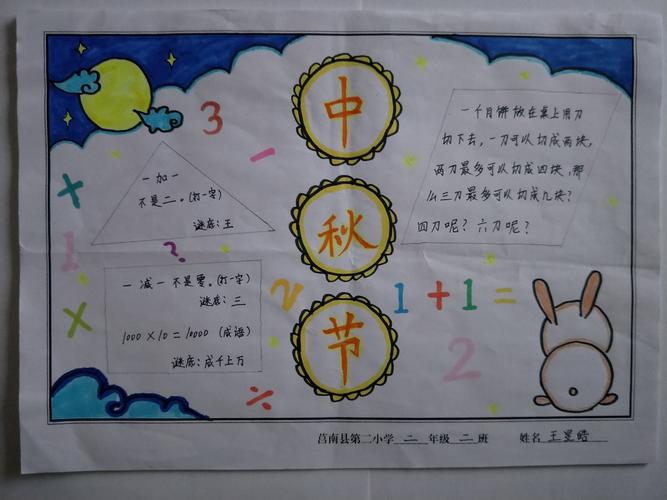 中
秋
节
3
-
+
1
×
?
2
÷
1+1=
2
一加一
不是二。(打一字)
谜底:王
一减一不是零。(打一字)
谜底:三
1000×10=10000 (成语)
谜底:成千上万
一个月饼放在桌上用刀
切下去,一刀可以切成两块,
两刀最多可以切成四块,那
么三刀最多可以切成几块?
四刀呢?六刀呢?
莒南县第二小学 二 年级 二 班 姓名 王昱皓